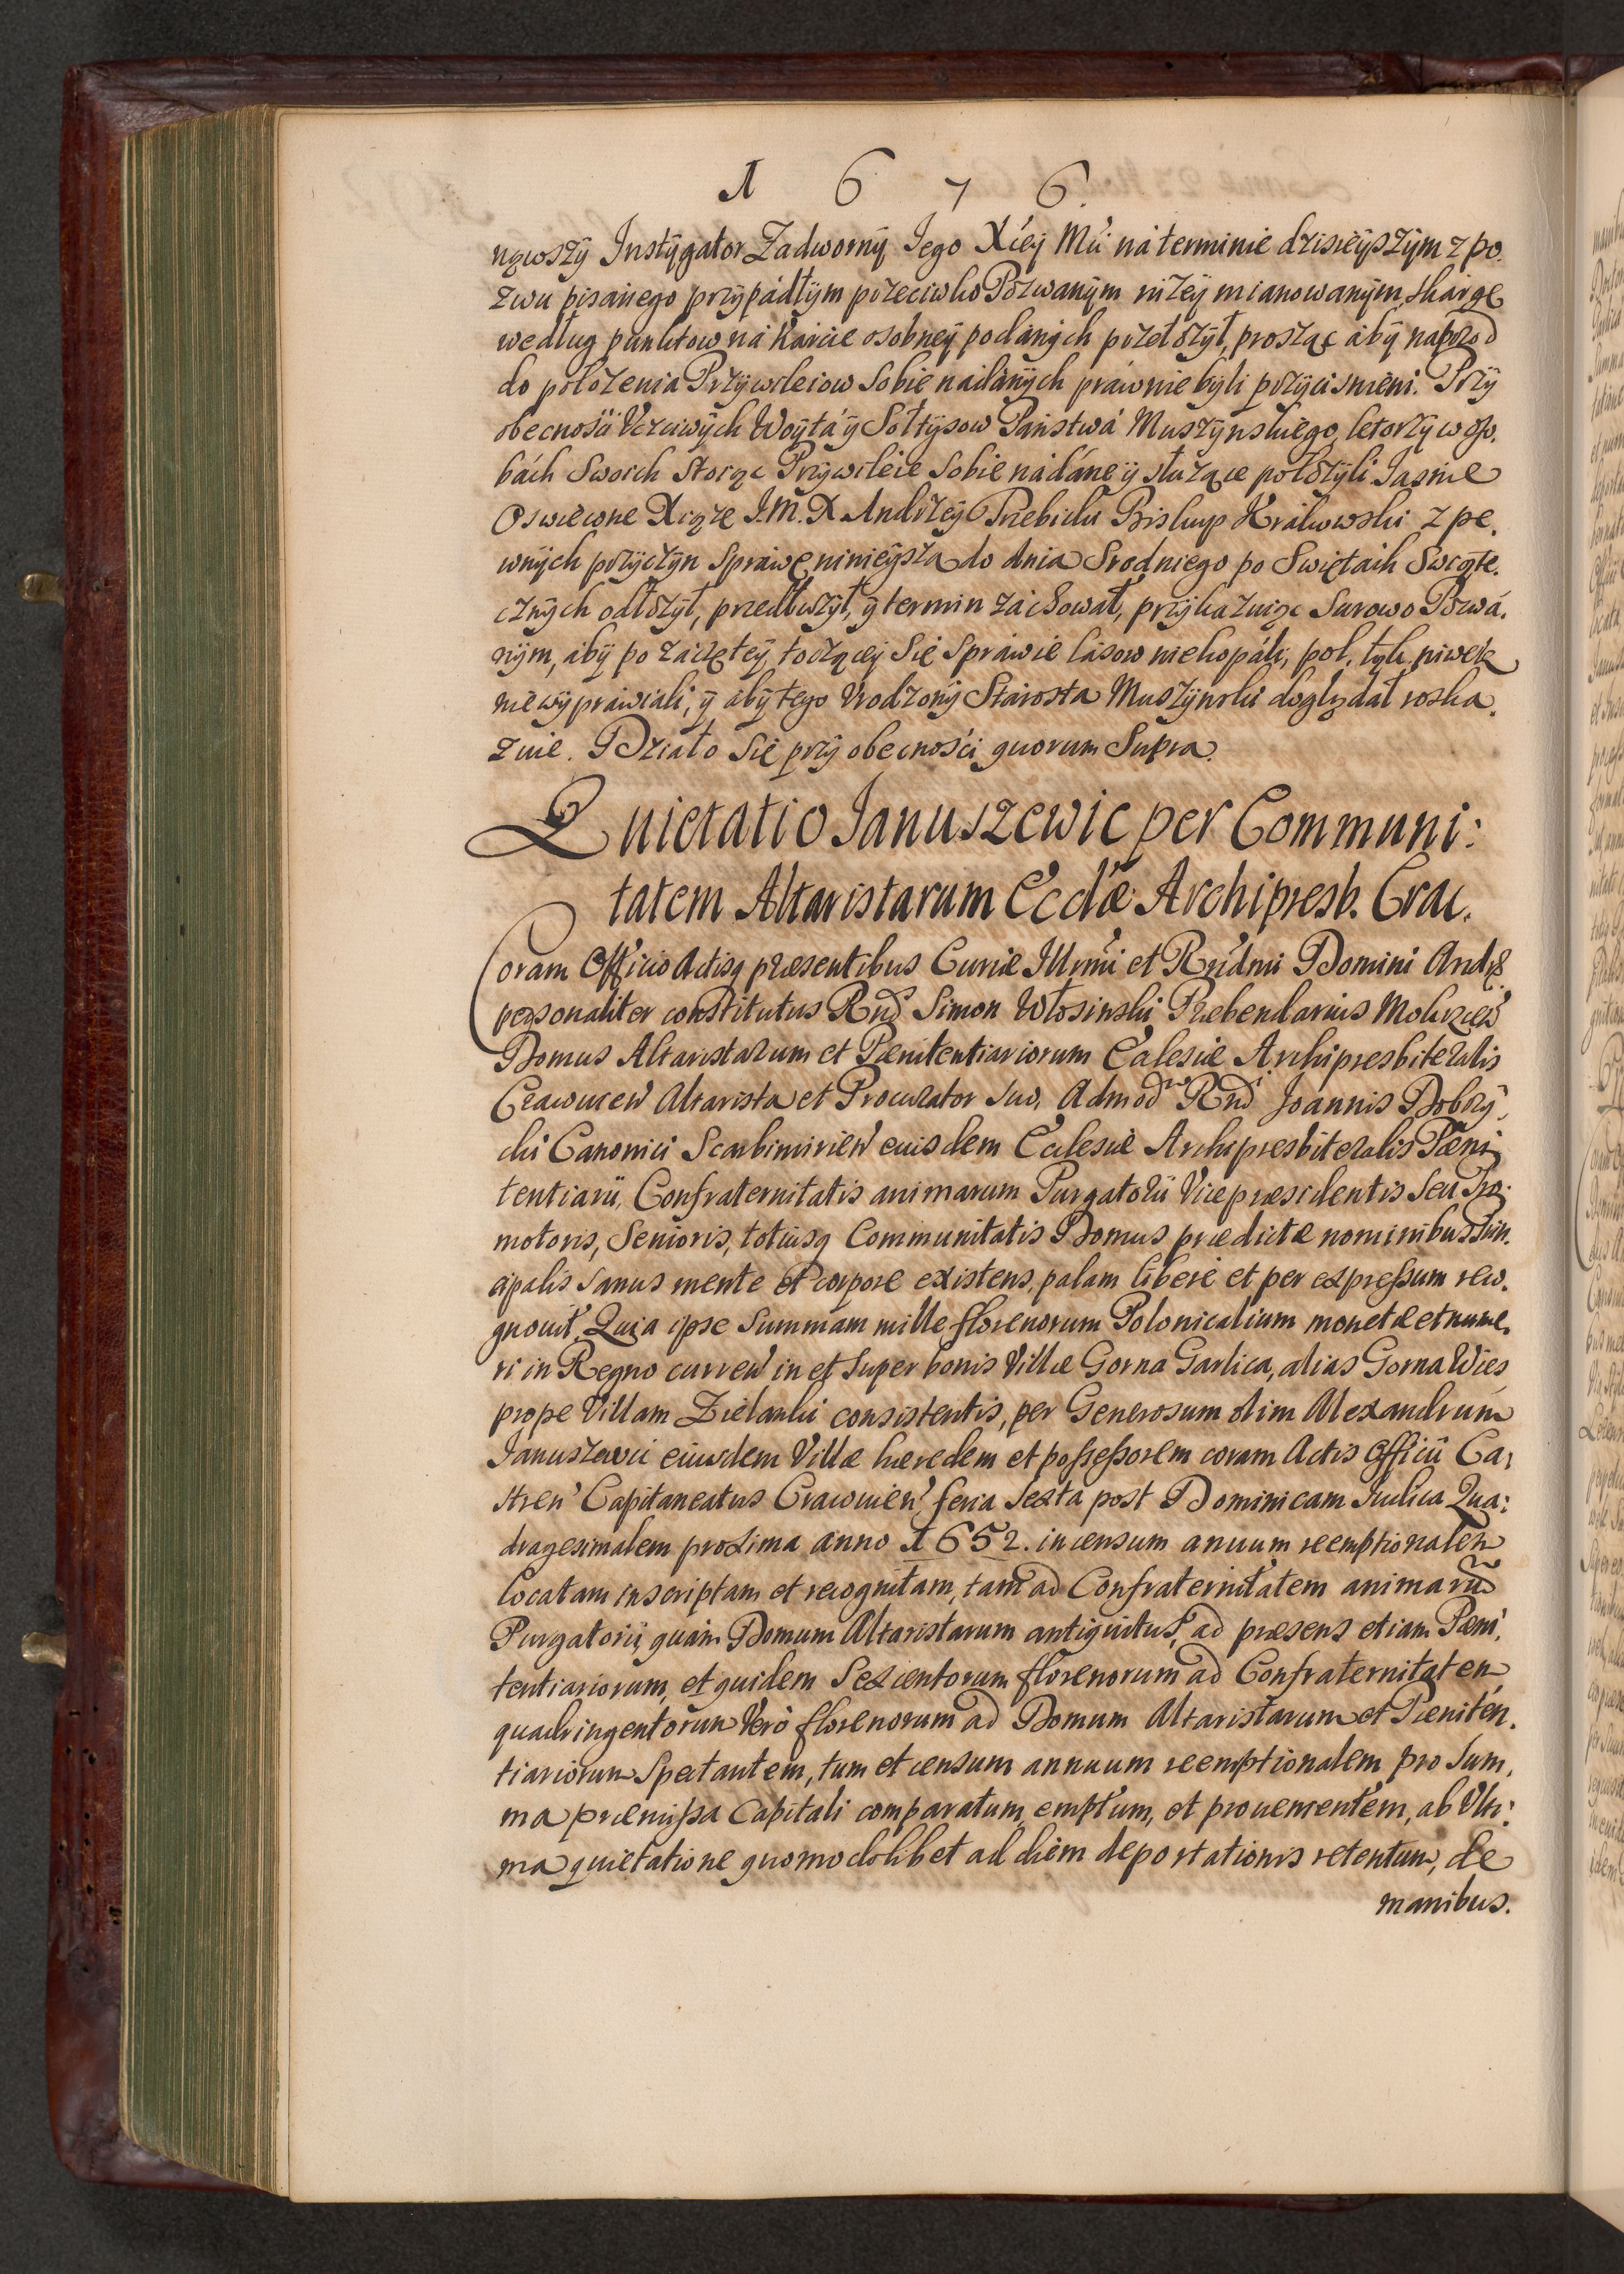 1 6 7 6.
nąwszÿ Instÿgator Zadwornÿ Jego Xcieÿ Mci ná terminie dzisieÿszÿm z po.
zwu pisánego przÿpádłÿm przeciwko Pozwanÿm niżeÿ mianowanÿm, skárgę
według punktow ná Karcie osobneÿ podánÿch przełożÿł, prosząc ábÿ naprzod
do położenia Przÿwileiow Sobie nadánÿch práwnie bÿli przÿcisnieni. Przÿ
obecności Vczciwÿch Woÿtá ÿ Sołtÿsow Páństwá Muszÿnskiego, ktorzÿ w oso.
bách Swoich Storąc Przÿwileie Sobie nádáne ÿ służące położÿli. Jasnie
Oswiecone Xiąże J.M.X. Andrzeÿ Trzebicki Biskup Krákowski z pe.
wnÿch przÿczÿn Spráwę ninieÿszą do dnia Srodniego po Swiętách Swiąte.
cznÿch odłożÿł, przedłużÿł, ÿ termin záchował, przÿkázuiąc Surowo Pozwá.
nÿm, ábÿ po záczętеÿ toczącеÿ Się Spráwie lásow niekopáli, pol, łąk, niwek
niewÿpráwiali, ÿ ábÿ tego Vrodzonÿ Stárosta Muszÿnski doglądał roska.
zuie. Działo Się przÿ obecności quorum Supra.
Quietatio Januszewic per Communi:
tatem Altaristarum Eccłæ Archipresb. Crac.
Coram Officio Actisq præsentibus Curiæ Illrmi et Rndmi Domini Andr.
personaliter constitutus Rnd Simon Włosinski Præbendarius Mokrzceń
Domus Altaristarum et Pænitentiariorum Ecclesiæ Archipresbiteralis
Cracouien̄ Altarista et Procurator suo, Admod Rnd Joannis Dobrzÿ,
cki Canonici Scarbimirien̄ eiusdem Ecclesiæ Archipresbiteralis Pæni
tentiarii, Confraternitatis animarum Purgatorii Vicepræsidentis Seu Pro.
motoris, Senioris, totiusq Communitatis Domus prædictæ nominibus Prin.
cipalis sanus mente et corpore existens, palam libere et per expressum reco.
gnouit, Quia ipse Summam mille florenorum Polonicalium monetæ et nume.
ri in Regno curren̄ in et Super bonis Villæ Gorna Garlica, alias Gorna Wies
prope Villam Zielonki consistentis, per Generosum olim Alexandrum
Januszewic eiusdem Villæ hæredem et possessorem coram Actis Officii Ca,
stren̄ Capitaneatus Cracouien̄ feria Sexta post Dominicam Iudica Qua:
dragesimalem proxima anno 1652. in censum anuum reemptionalem
locatam inscriptam et recognitam, tam ad Confraternitatem animarū
Purgatorii quàm Domum Altaristarum antiquitus, ad præsens etiam Pæni,
tentiariorum, et quidem Sexcentorum florenorum ad Confraternitatem
quadringentorum Verò florenorum ad Domum Altaristarum et Pæniten.
tiariorum Spectantem, tum et censum annuum reemptionalem pro Sum,
ma præmissa Capitali comparatum, emptum, et prouenientem, ab Vlti:
ma quietatione quomodolibet ad diem deportationis retentum, de
manibus.